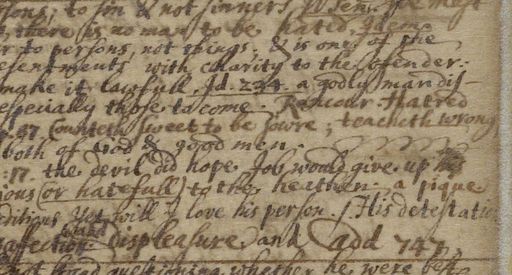 sons; to sin & not sinners
there is no man to be hated, Idem
r to persons, not things, & is one of the
esentments with charity to the offender.
make it lawfull. Id. 234. a godly man dis-
especially those to come. Rancour & hatred
.27. Counteth sweet to be sowre, teacheth wrong
both of God & good men.
:17. the devil did hope Job would give up his
ious (or hatefull) to the heathen. a pique
ditions Yet will I love his person. His detestation
affection. displeasure and add 747.
not stand questioning whether he were best